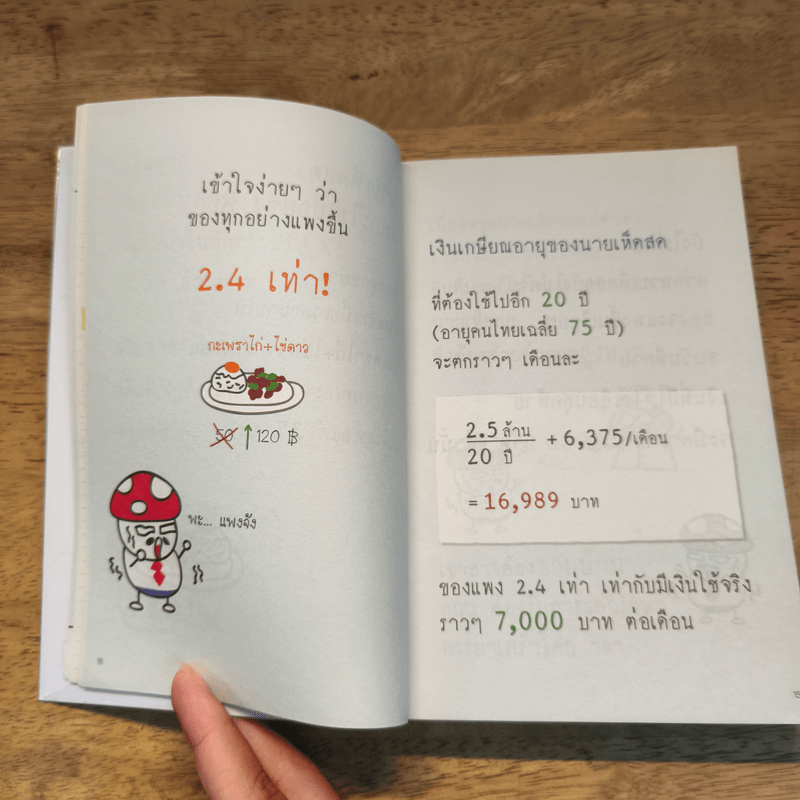 เข้าใจง่ายๆ ว่า
ของทุกอย่างแพงขึ้น
2.4 เท่า!
กะเพราไก่+ไข่ดาว
50 ↑ 120 ฿
พะ... แพงจัง
เงินเกษียณอายุของนายเห็ดสด
ที่ต้องใช้ไปอีก 20 ปี
(อายุคนไทยเฉลี่ย 75 ปี)
จะตกราวๆ เดือนละ
2.5 ล้าน
20 ปี
+ 6,375/เดือน
= 16,989 บาท
ของแพง 2.4 เท่า เท่ากับมีเงินใช้จริง
ราวๆ 7,000 บาท ต่อเดือน